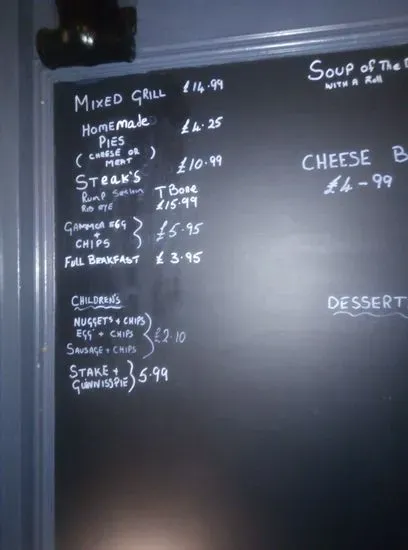 MIXED GRILL £14.99
HOMEmade £4.25
PIES
(CHEESE OR MEAT)
STEAK'S £10.99
RUMP SIRLOIN T BONE
RIB EYE £15.99
GAMMON EGG
+ £5.95
CHIPS
FULL BREAKFAST £3.95
CHILDREN'S
NUGGETS + CHIPS
EGG + CHIPS £2.10
SAUSAGE + CHIPS
STAKE + 5.99
GUINNISSPIE
SOUP OF THE
WITH A Roll
CHEESE B
£4-99
DESSERT